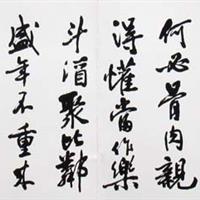 何必骨肉親
得懽當作樂
斗酒聚比鄰
盛年不重来